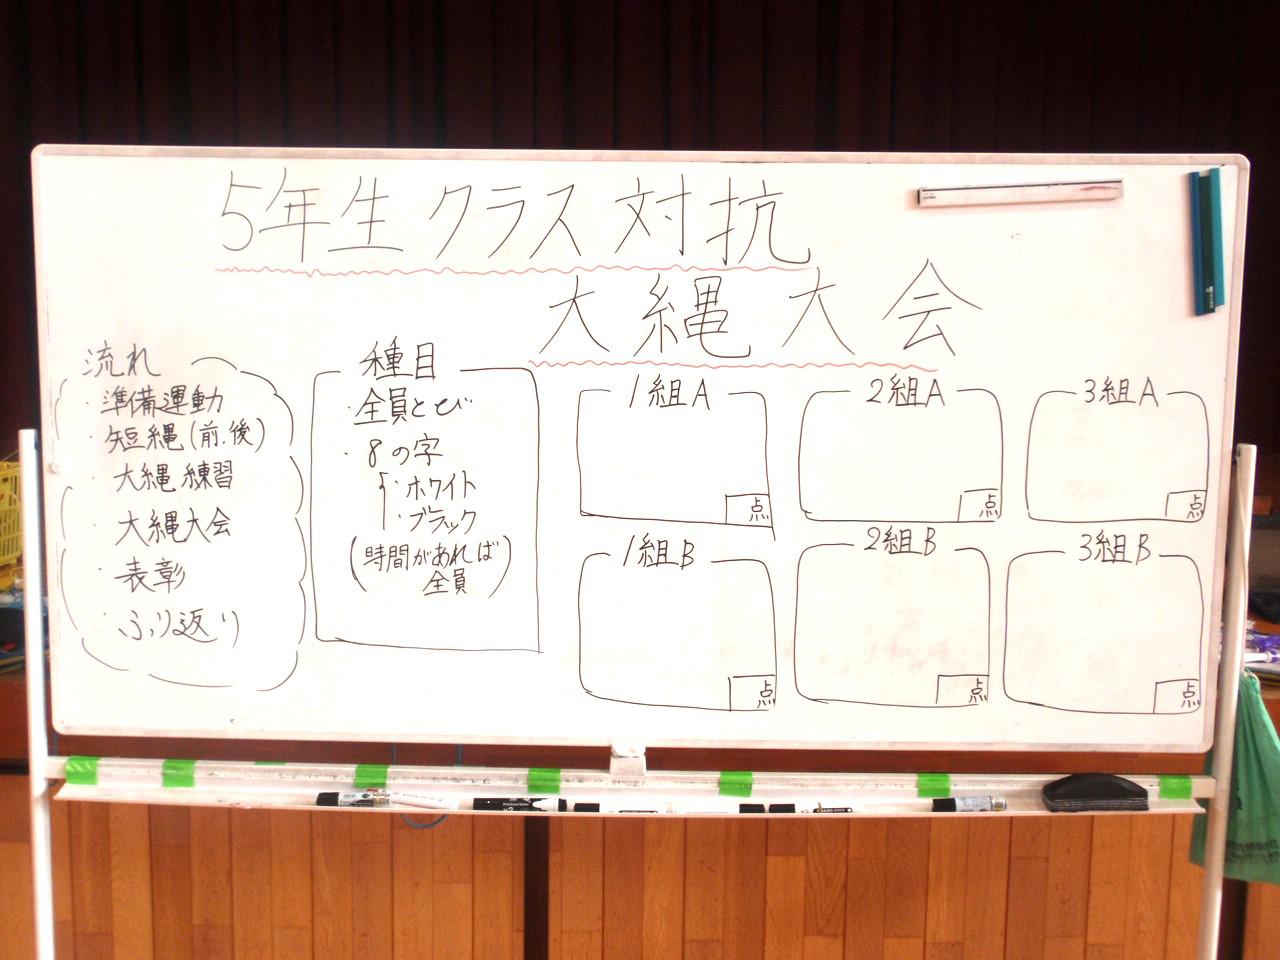 5年生クラス対抗
大縄大会
流れ
・準備運動
・短縄(前.後)
・大縄練習
・大縄大会
・表彰
・ふり返り
種目
・全員とび
・8の字
・ホワイト
・ブラック
(時間があれば
全員)
1組A
点
2組A
点
3組A
点
1組B
点
2組B
点
3組B
点